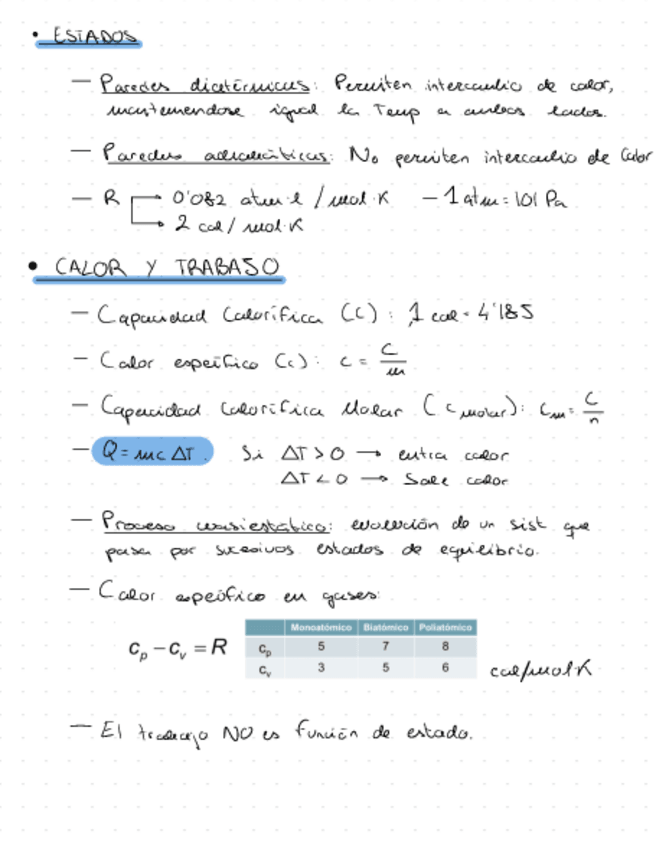 • ESTADOS
— Paredes diatérmicas: Permiten intercambio de calor,
manteniendose igual la Temp a ambos lados.
— Paredes adiabáticas: No permiten intercambio de Calor
— R → 0'082 atm·l / mol·K — 1 atm = 101 Pa
→ 2 cal / mol·K
• CALOR Y TRABAJO
— Capacidad Calorífica (C): 1 cal = 4'18 J
— Calor específico (c): c = C/m
— Capacidad Calorífica Molar (c molar): cm = C/n
— Q = mc ΔT. Si ΔT > 0 → entra calor
ΔT < 0 → Sale calor
— Proceso cuasiestático: evolución de un sist que
pasa por sucesivos estados de equilibrio.
— Calor específico en gases:
Monoatómico Biatómico Poliatómico
cp − cv = R cp 5 7 8
cv 3 5 6 cal/mol·K
— El trabajo NO es función de estado.